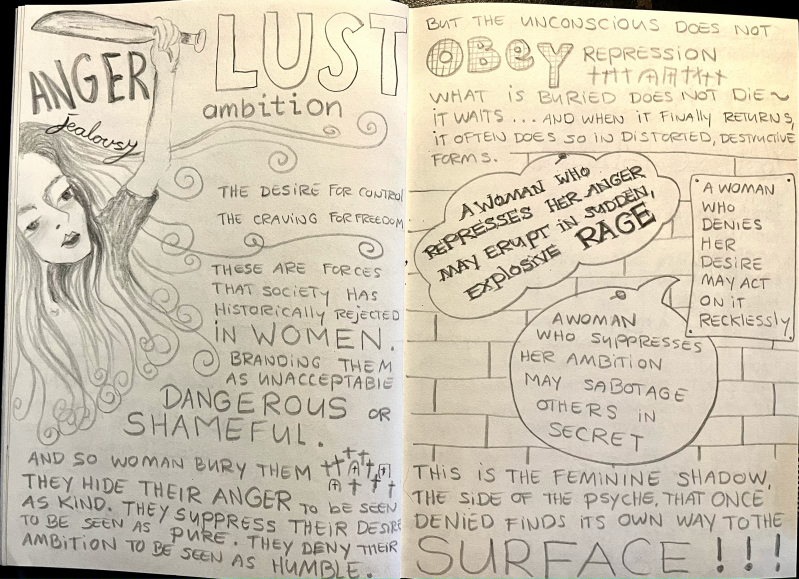 ANGER
LUST
ambition
jealousy
THE DESIRE FOR CONTROL
THE CRAVING FOR FREEDOM
THESE ARE FORCES
THAT SOCIETY HAS
HISTORICALLY REJECTED
iN WOMEN.
BRANDING THEM
AS UNACCEPTABLE
DANGEROUS OR
SHAMEFUL.
AND SO WOMAN BURY THEM
THEY HIDE THEIR ANGER TO BE SEEN
AS KIND. THEY SUPPRESS THEIR DESIRE
TO BE SEEN AS PURE. THEY DENY THEIR
AMBITION TO BE SEEN AS HUMBLE.
BUT THE UNCONSCIOUS DOES NOT
OBeY REPRESSION
WHAT iS BURIED DOES NOT DIE~
iT WAITS... AND WHEN iT FINALLY RETURNS,
iT OFTEN DOES SO IN DISTORTED, DESTRUCTIVE
FORMS.
A WOMAN WHO
REPRESSES HER ANGER
MAY ERUPT IN SUDDEN,
EXPLOSIVE RAGE
A WOMAN
WHO
DENIES
HER
DESIRE
MAY ACT
ON iT
RECKLESSLY
A WOMAN
WHO SUPPRESSES
HER AMBITION
MAY SABOTAGE
OTHERS iN
SECRET
THIS iS THE FEMININE SHADOW,
THE SIDE OF THE PSYCHE, THAT ONCE
DENIED FINDS ITS OWN WAY TO THE
SURFACE!!!